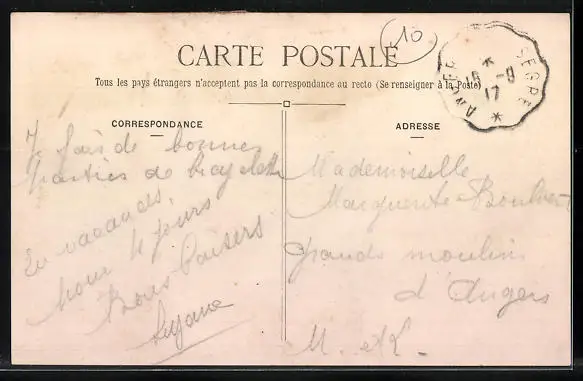 10
CARTE POSTALE
Tous les pays étrangers n'acceptent pas la correspondance au recto (Se renseigner à la Poste)
ANGERS SEGRÉ
15 -9
17
CORRESPONDANCE
Je fais de bonnes
parties de bicyclette
En vacances,
pour 4 jours
Bons Baisers
ADRESSE
Mademoiselle
Marguerite
grands moulins
d'Angers
M. et L.